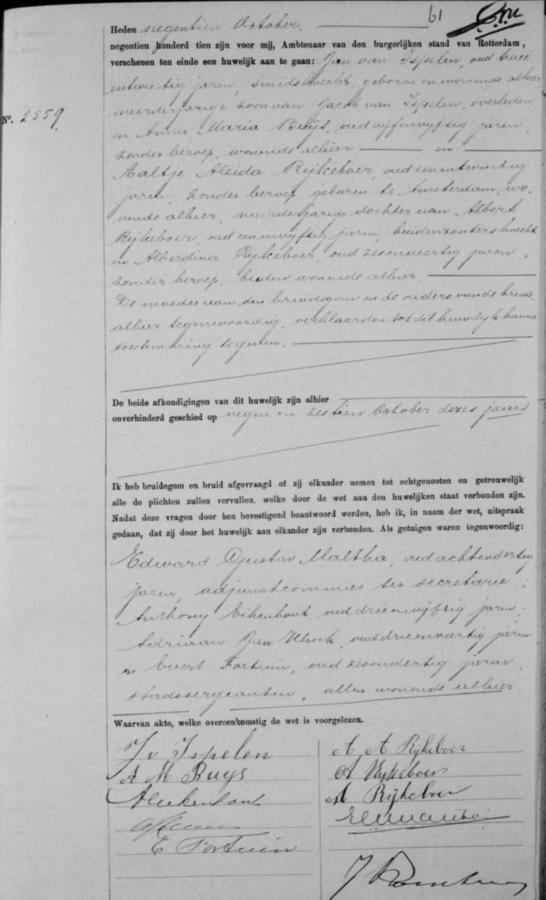 61
Heden negentien October.
negentien honderd tien zijn voor mij, Ambtenaar van den burgerlijken stand van Rotterdam,
verschenen ten einde een huwelijk aan te gaan: Jan van IJspelen, oud twee
entwintig jaren, smidsknecht, geboren en wonende alhier
meerderjarige zoon van Jacob van IJspelen, overleden
No. 2559
en Anna Maria Buijs, oud vijfenvijftig jaren,
zonder beroep, wonende alhier en
Aaltje Aleida Rijkeboer, oud eenentwintig
jaren, zonder beroep, geboren te Amsterdam, wo-
nende alhier, meerderjarige dochter van Albert
Rijkeboer, oud eenenvijftig jaren, huidenzoutersknecht
en Alberdina Rijkeboer, oud zesenveertig jaren,
zonder beroep, beiden wonende alhier
De moeder van den bruidegom en de ouders van de bruid,
alhier tegenwoordig, verklaarden tot dit huwelijk hunne
toestemming te geven.
De beide afkondigingen van dit huwelijk zijn alhier
onverhinderd geschied op negen en zestien October dezes jaars
Ik heb bruidegom en bruid afgevraagd of zij elkander nemen tot echtgenooten en getrouwelijk
alle de plichten zullen vervullen, welke door de wet aan den huwelijken staat verbonden zijn.
Nadat deze vragen door hen bevestigend beantwoord werden, heb ik, in naam der wet, uitspraak
gedaan, dat zij door het huwelijk aan elkander zijn verbonden. Als getuigen waren tegenwoordig:
Edward Gustav Maltha, oud achtendertig
jaren, adjunctcommies ter secretarie;
Anthony Eikenhout, oud drieenvijftig jaren;
Adriaan Jan oud drieenveertig jaren
en Evert Fortuin, oud zesendertig jaren,
stadssergeanten, allen wonende alhier.
Waarvan akte, welke overeenkomstig de wet is voorgelezen.
J v IJspelen
A A Rijkeboer
A M Buys
A Rijkeboer
A Eikenhout
A Rijkeboer
E Fortuin